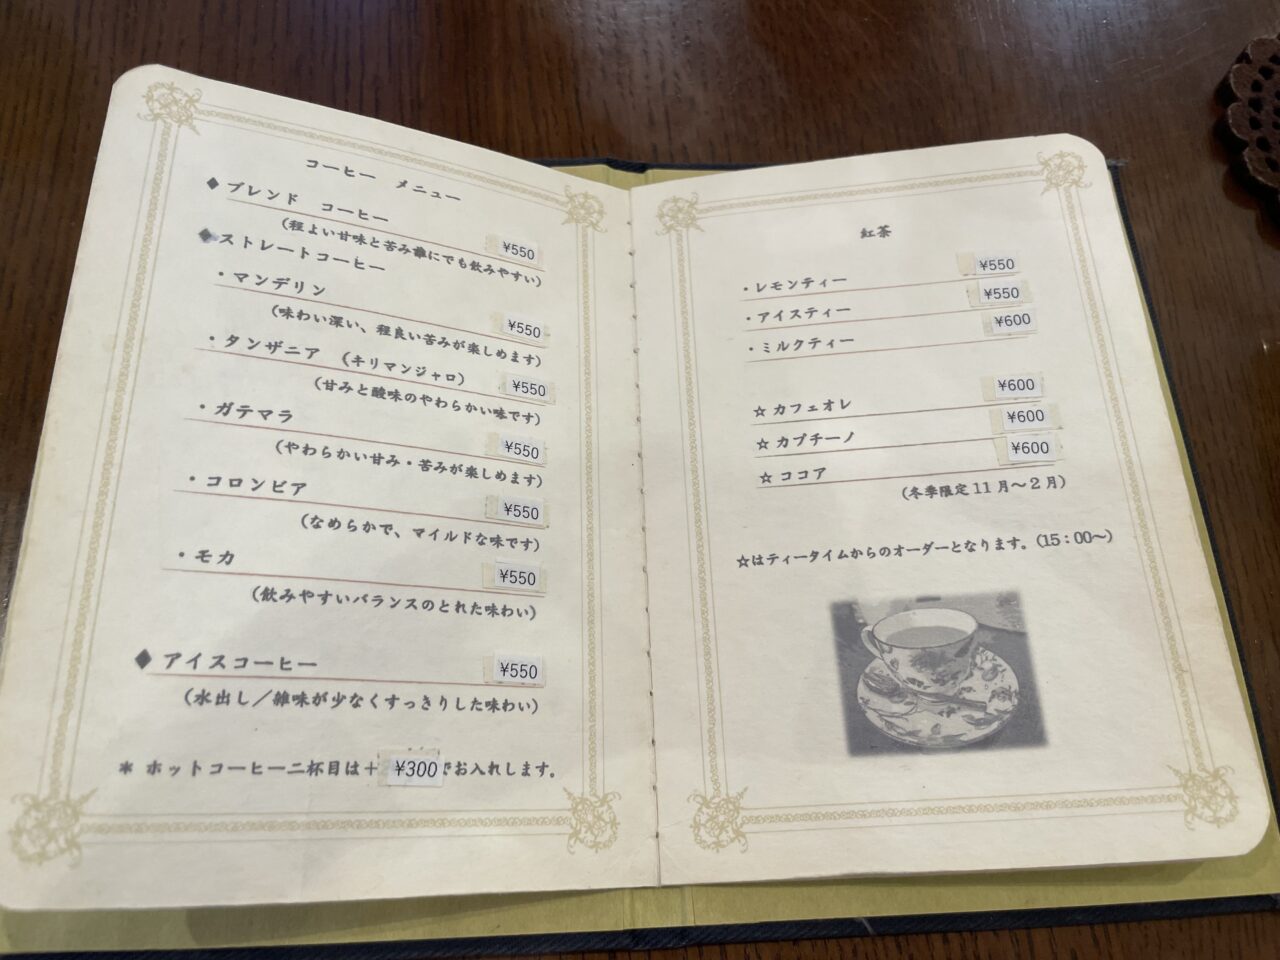 コーヒー メニュー
◆ブレンド コーヒー ¥550
(程よい甘味と苦み誰にでも飲みやすい)
◆ストレートコーヒー
・マンデリン ¥550
(味わい深い、程良い苦みが楽しめます)
・タンザニア (キリマンジャロ) ¥550
(甘みと酸味のやわらかい味です)
・ガテマラ ¥550
(やわらかい甘み・苦みが楽しめます)
・コロンビア ¥550
(なめらかで、マイルドな味です)
・モカ ¥550
(飲みやすいバランスのとれた味わい)
◆アイスコーヒー ¥550
(水出し/雑味が少なくすっきりした味わい)
* ホットコーヒー二杯目は+ ¥300でお入れします。
紅茶
・レモンティー ¥550
・アイスティー ¥550
・ミルクティー ¥600
☆カフェオレ ¥600
☆カプチーノ ¥600
☆ココア ¥600
(冬季限定11月~2月)
☆はティータイムからのオーダーとなります。(15:00~)